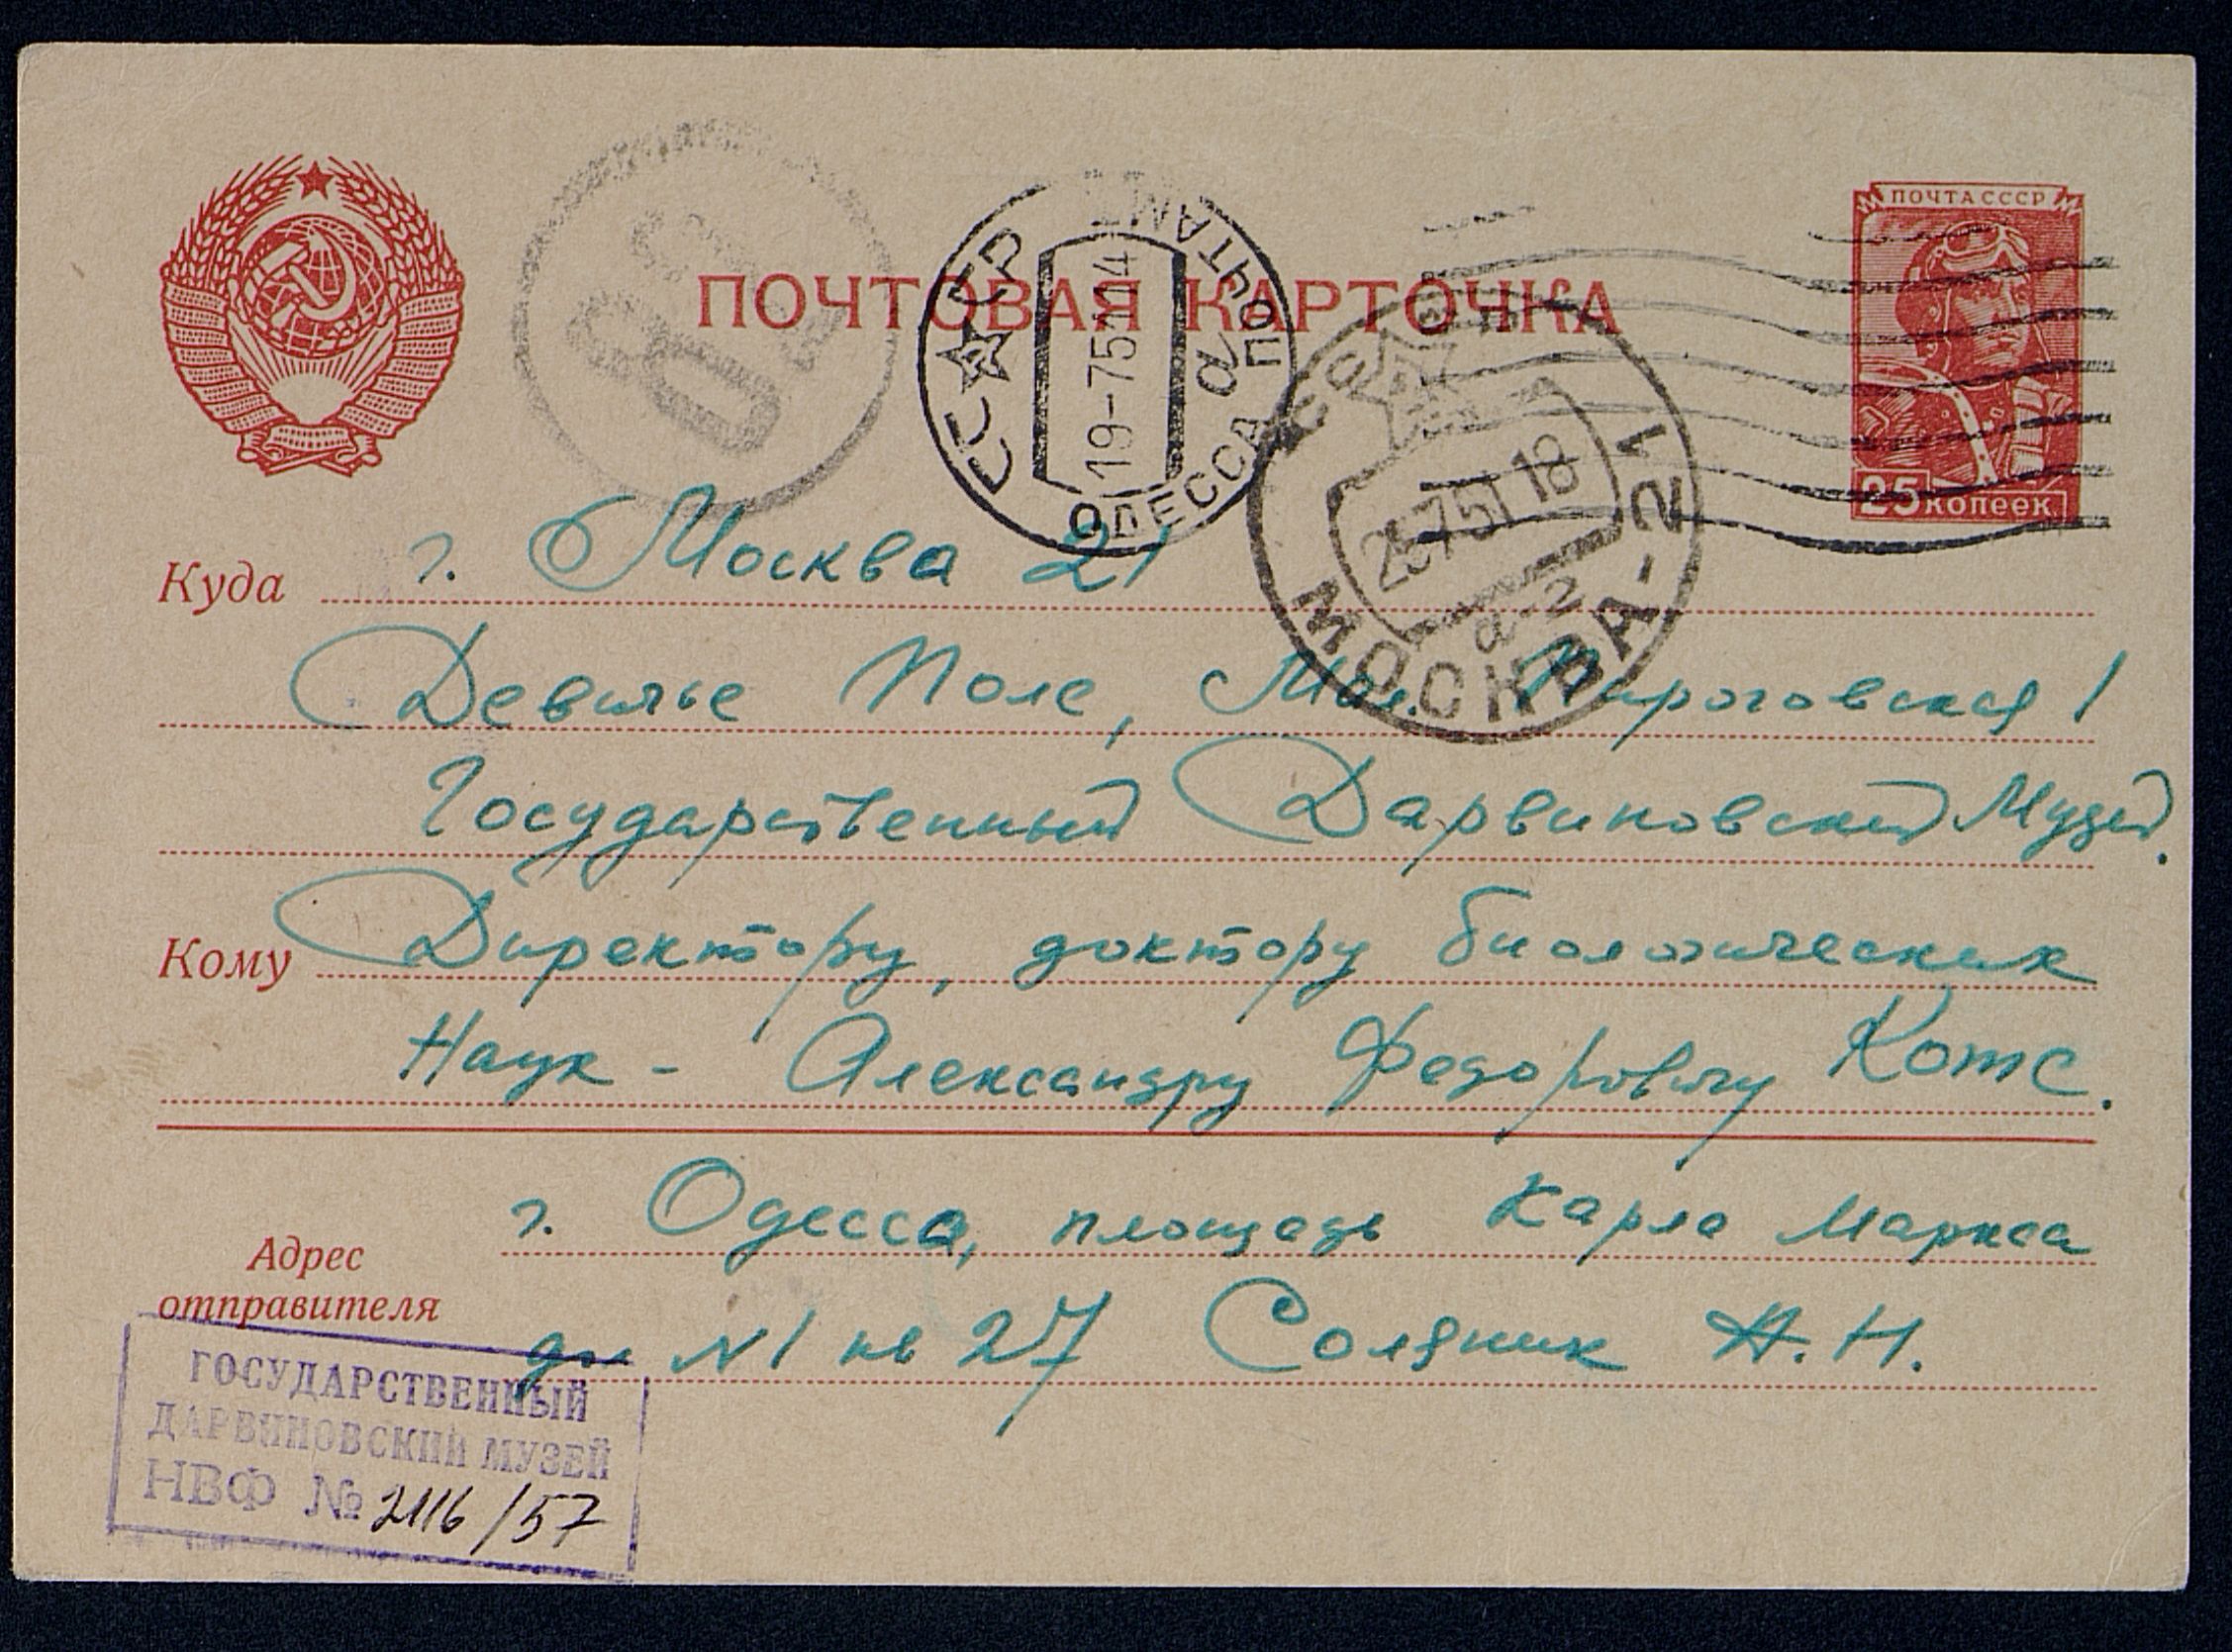 ПОЧТА СССР
ПОЧТОВАЯ КАРТОЧКА
25 копеек
СССР
19-7 51 14
ОДЕССА ПОЧТАМТ
а
СССР
7 51 18
а-2
МОСКВА-21
Куда г. Москва 21
Девичье Поле, Мал. Пироговская 1
Государственный Дарвиновский Музей.
Кому Директору, доктору биологических
Наук - Александру Федоровичу Котс.
Адрес
отправителя
г. Одесса, площадь Карла Маркса
дм N1 кв 27 Соляник А.Н.
ГОСУДАРСТВЕННЫЙ
ДАРВИНОВСКИЙ МУЗЕЙ
НВФ № 2116/57